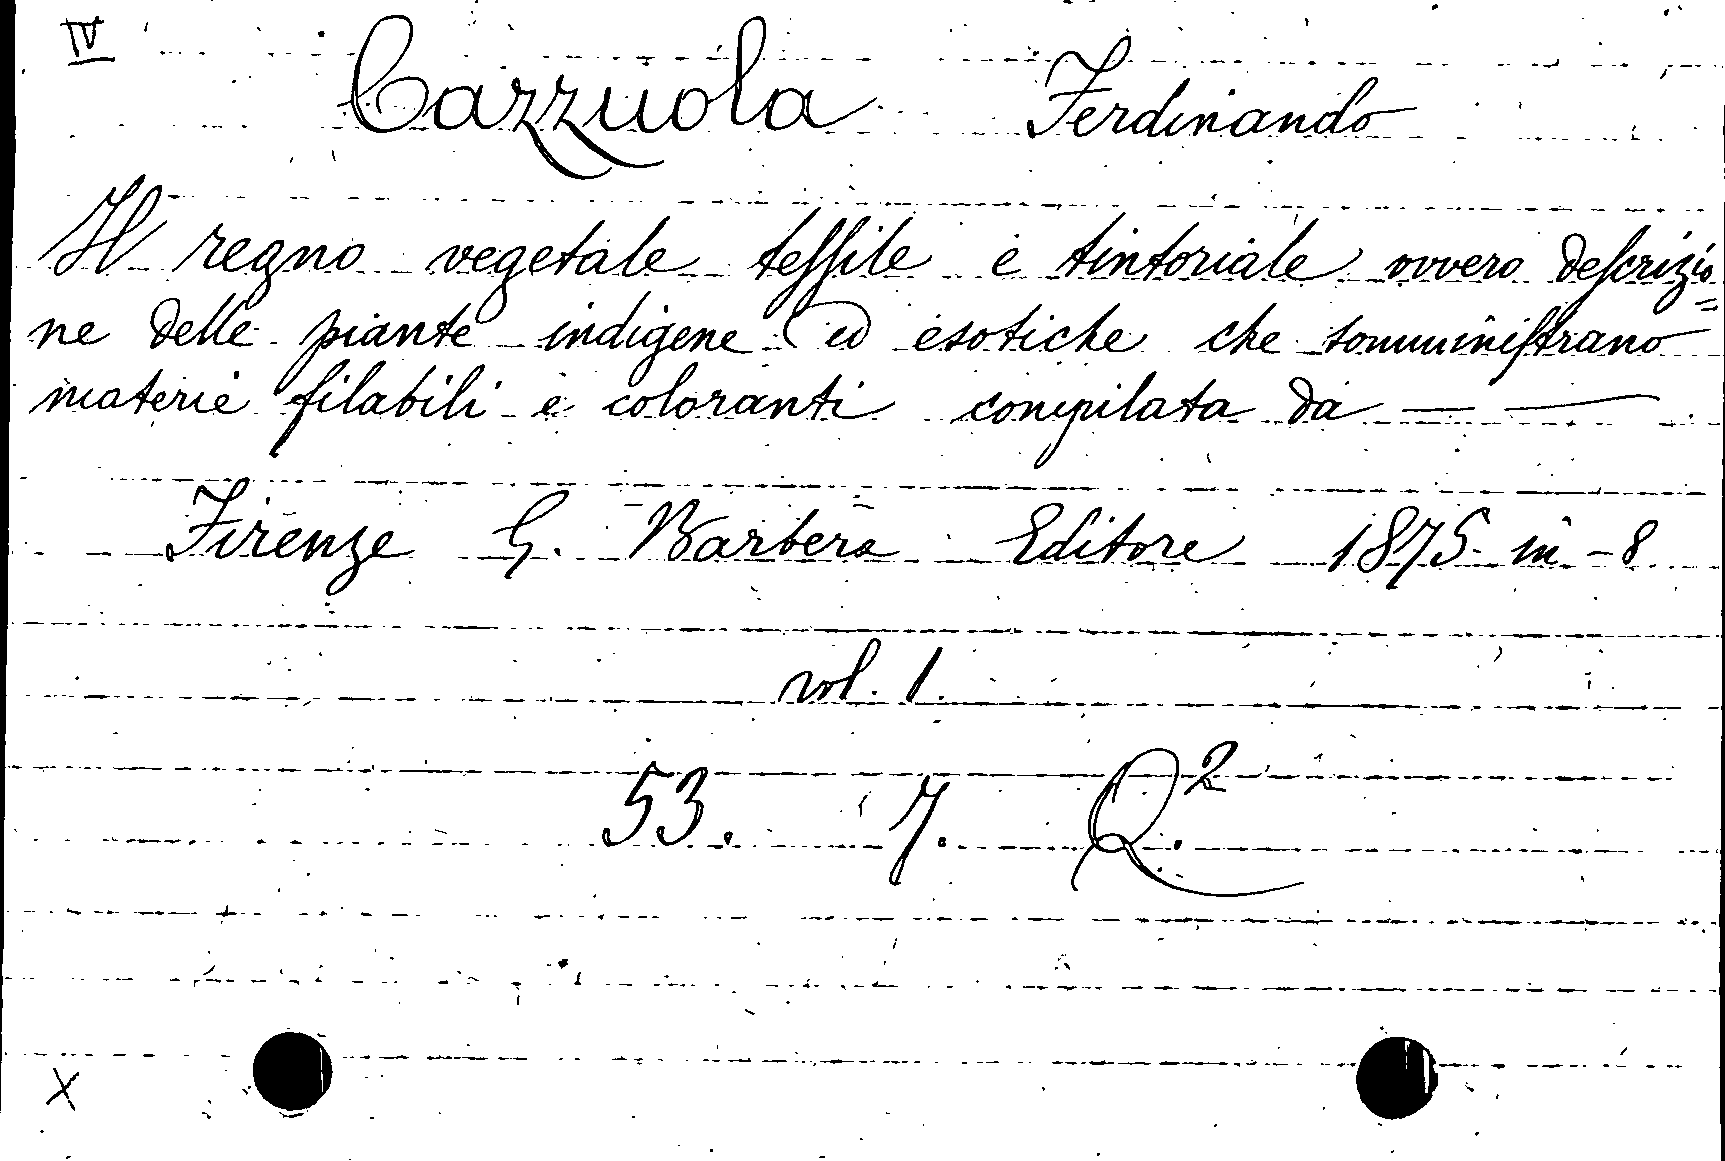 IV
Cazzuola Ferdinando
Il regno vegetale tessile e tintoriale ovvero descrizio=
ne delle piante indigene ed esotiche che somministrano
materie filabili e coloranti compilata da — —
Firenze G. Barbèra Editore 1875. in-8
vol. 1.
53. 7. Q.²
X